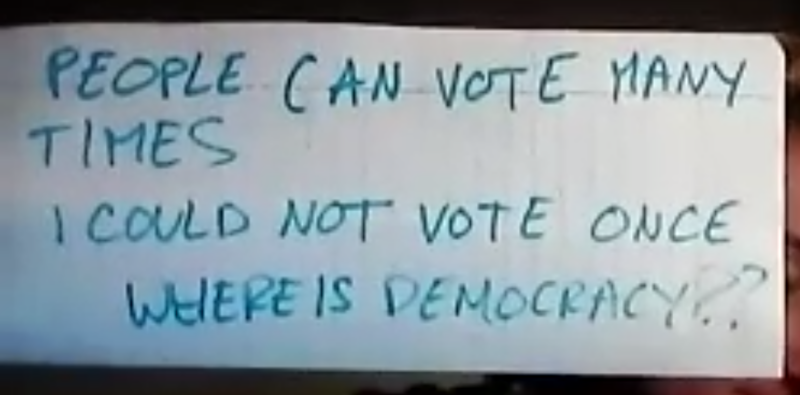 PEOPLE CAN VOTE MANY
TIMES
I COULD NOT VOTE ONCE
WHERE IS DEMOCRACY??